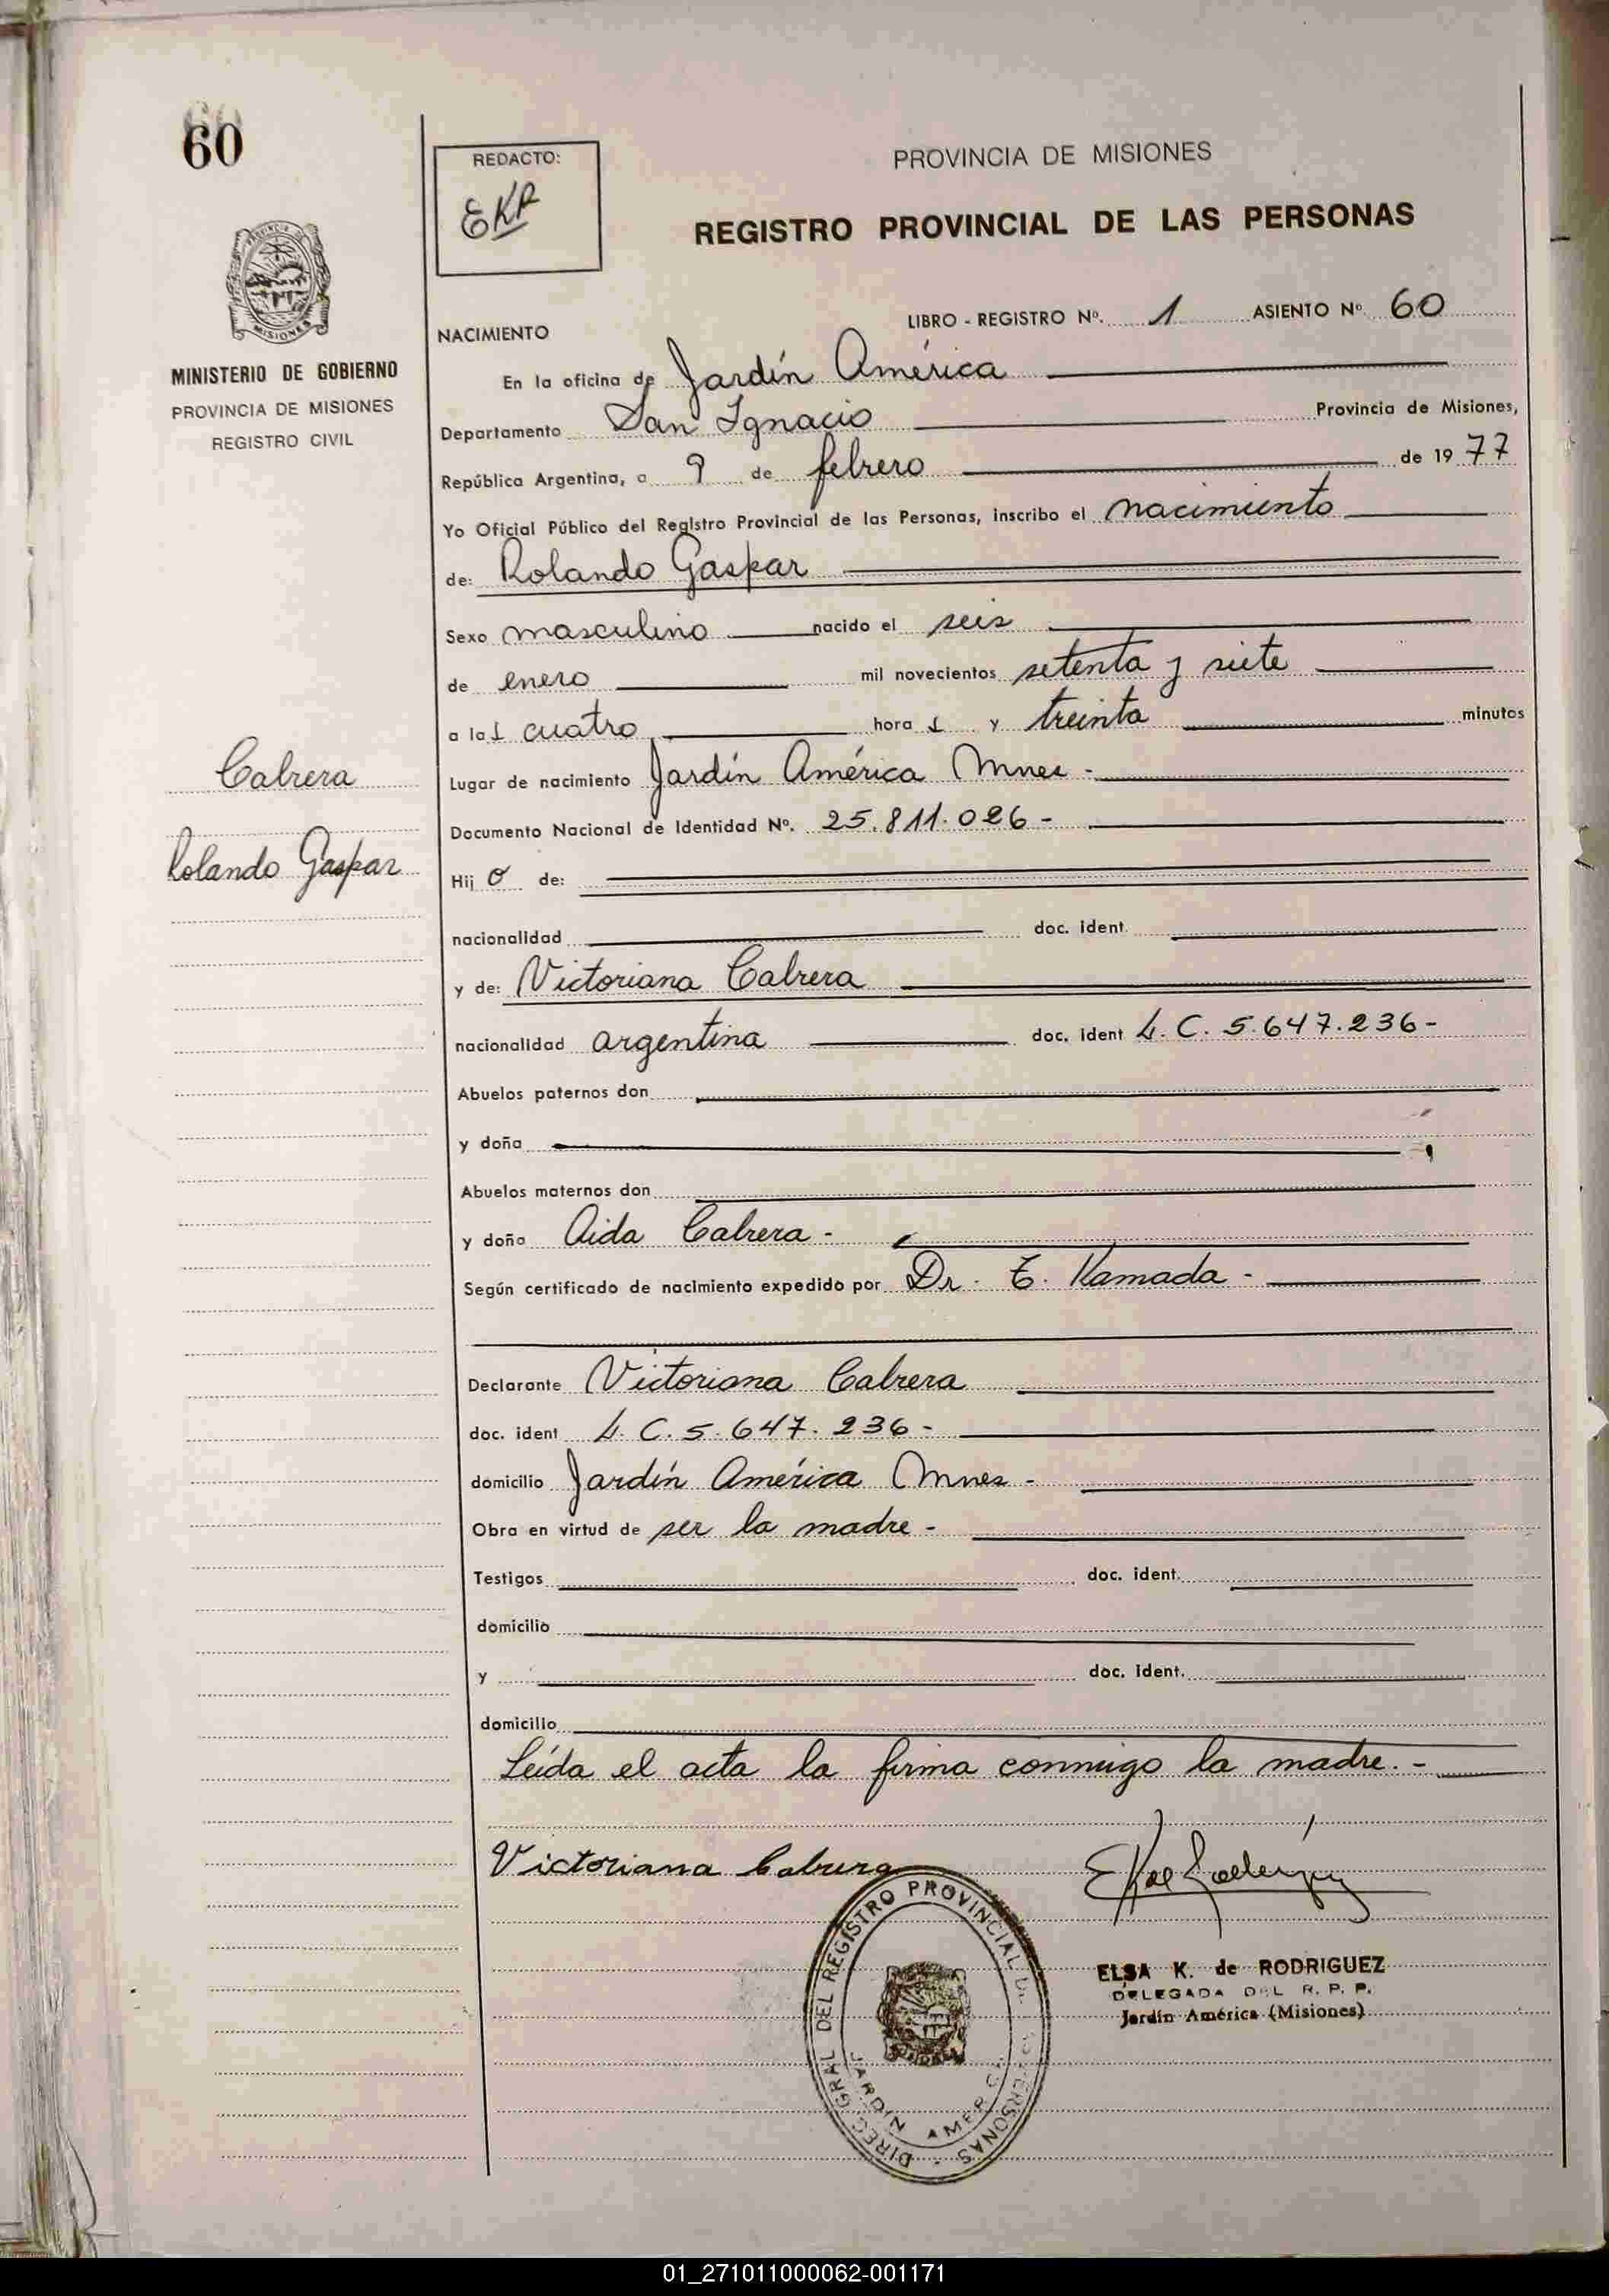 60
REDACTO:
EKR
PROVINCIA DE MISIONES
REGISTRO PROVINCIAL DE LAS PERSONAS
MISIONES
MINISTERIO DE GOBIERNO
PROVINCIA DE MISIONES
REGISTRO CIVIL
NACIMIENTO
LIBRO - REGISTRO Nº. 1 ASIENTO Nº 60
En la oficina de Jardín América
Departamento San Ignacio Provincia de Misiones,
República Argentina, a 9 de febrero de 1977
Yo Oficial Público del Registro Provincial de las Personas, inscribo el nacimiento
de: Rolando Gaspar
Sexo masculino nacido el seis
de enero mil novecientos setenta y siete
a las cuatro hora s y treinta minutos
Cabrera
Rolando Gaspar
Lugar de nacimiento Jardín América Mnes -
Documento Nacional de Identidad Nº. 25.811.026 -
Hij o de:
nacionalidad doc. ident.
y de: Victoriana Cabrera
nacionalidad argentina doc. ident L. C. 5.647.236 -
Abuelos paternos don
y doña
Abuelos maternos don
y doña Aida Cabrera -
Según certificado de nacimiento expedido por Dr. T. Kamada -
Declarante Victoriana Cabrera
doc. ident L. C. 5.647.236 -
domicilio Jardín América Mnes -
Obra en virtud de ser la madre -
Testigos doc. ident.
domicilio
y doc. ident.
domicilio
Leída el acta la firma conmigo la madre. -
Victoriana Cabrera
ELSA K. de RODRIGUEZ
DELEGADA DEL R. P. P.
Jardín América (Misiones)
DIREC. GRAL DEL REGISTRO PROVINCIAL DE PERSONAS
JARDIN AMERICA
01_271011000062-001171